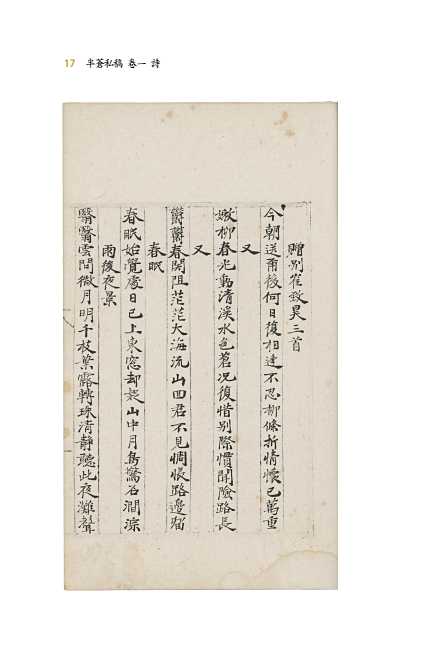 17 半蒼私稿 卷一 詩
贈別崔致昊三首
今朝送爾後何日復相逢不忍柳條折情懷已萬重
又
嫩柳春光動清溪水色茗况復惜別際慣聞險路長
又
欝欝春関阻茫茫大海流山四君不見惆悵路邊留
春眠
春眠始覺處日已上東窓却疑山中月鳥驚石澗淙
雨後夜景
翳翳雲間微月明千枝葉露轉珠清靜聽此夜灘聲